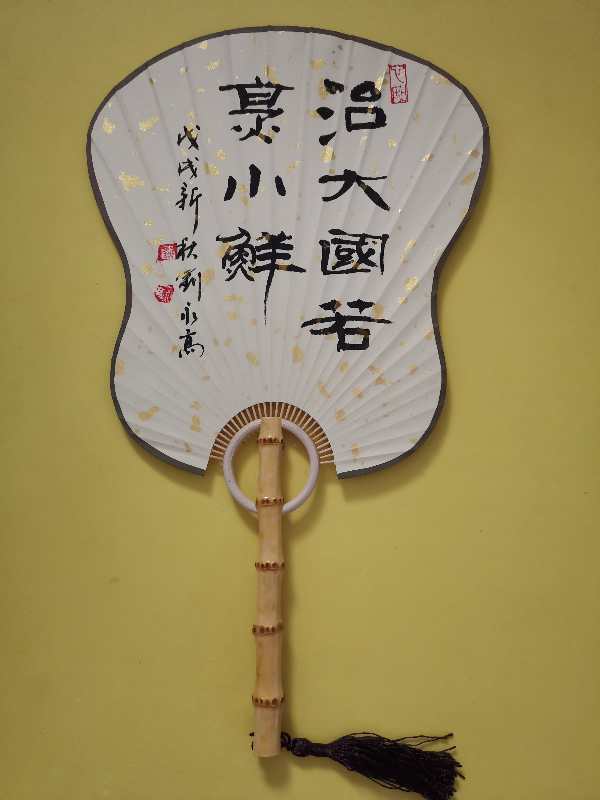 治大國若
烹小鮮
戊戌新秋劉永高